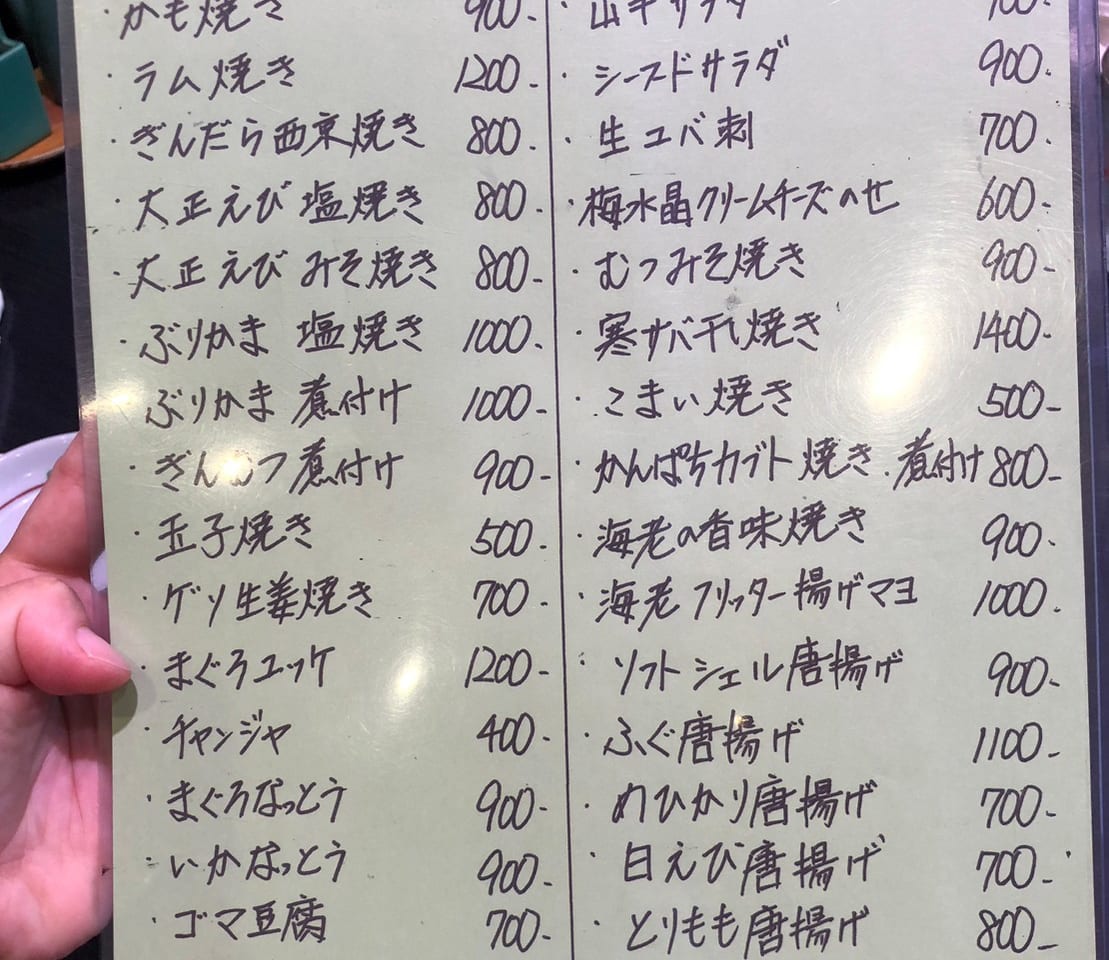 かも焼き 900-
・ラム焼き 1200-
・ぎんだら西京焼き 800-
・大正えび 塩焼き 800-
・大正えび みそ焼き 800-
・ぶりかま 塩焼き 1000-
・ぶりかま 煮付け 1000-
・ぎんむつ煮付け 900-
・玉子焼き 500-
・ゲソ生姜焼き 700-
・まぐろユッケ 1200-
・チャンジャ 400-
・まぐろなっとう 900-
・いかなっとう 900-
・ゴマ豆腐 700-
サラダ 700-
・シーフードサラダ 900-
・生ユバ刺 700-
・梅水晶クリームチーズのせ 600-
・むつみそ焼き 900-
・寒サバ干し焼き 1400-
・こまい焼き 500-
・かんぱちカブト焼き・煮付け 800-
・海老の香味焼き 900-
・海老フリッター揚げマヨ 1000-
・ソフトシェル唐揚げ 900-
・ふぐ唐揚げ 1100-
・めひかり唐揚げ 700-
・白えび唐揚げ 700-
・とりもも唐揚げ 800-